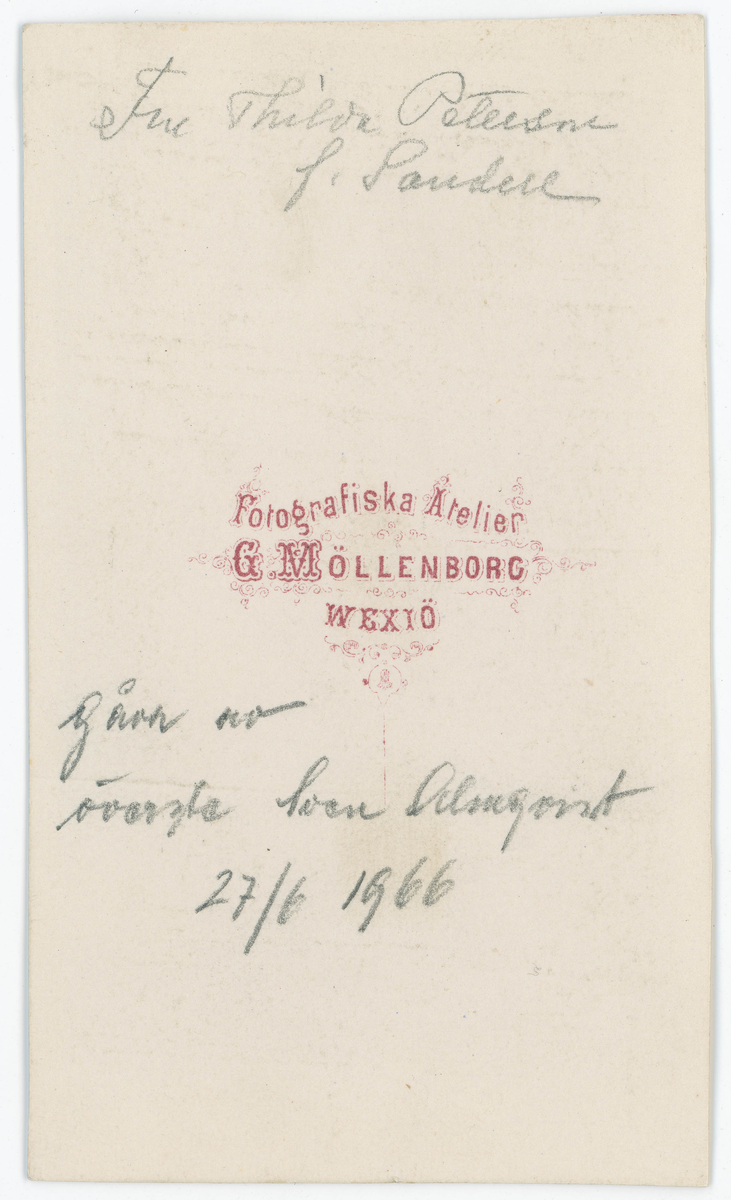 Fru Thilda Peterson
f. Sandell
Fotografiska Atelier
G. MÖLLENBORG
WEXIÖ
gåva av
överste Sven Almqvist
27/6 1966